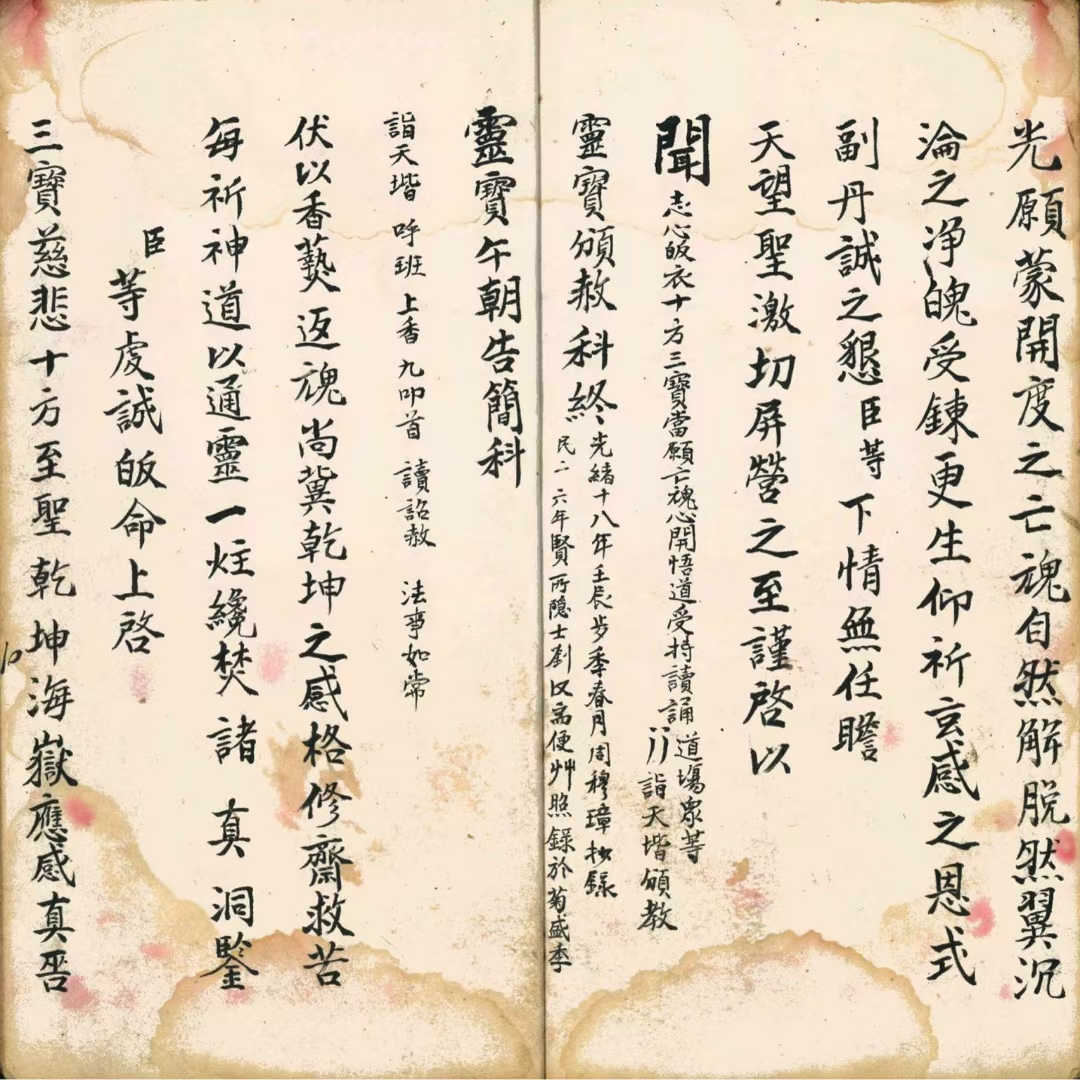 光願蒙開度之亡魂自然解脱然翼沉
淪之净魄受鍊更生仰祈玄感之恩式
副丹誠之懇臣等下情無任瞻
天望聖激切屏營之至謹啓以
聞志心皈衣十方三寳當願亡魂心開悟道受持讀誦道場衆等
詣天堦頒教
靈寳頒赦科終
光緒十八年壬辰歩季春月周穆璋抄録
民二六年賢所隐士劉漢高便艸照録於菊盛季
靈寳午朝告簡科
詣天堦 呼班 上香 九叩首 讀詔赦 法事如常
伏以香藝返魂尚冀乾坤之感格修齋救苦
每祈神道以通靈一炷纔焚諸 真洞鑒
臣等虔誠皈命上啓
三寳慈悲十方至聖乾坤海嶽應感真